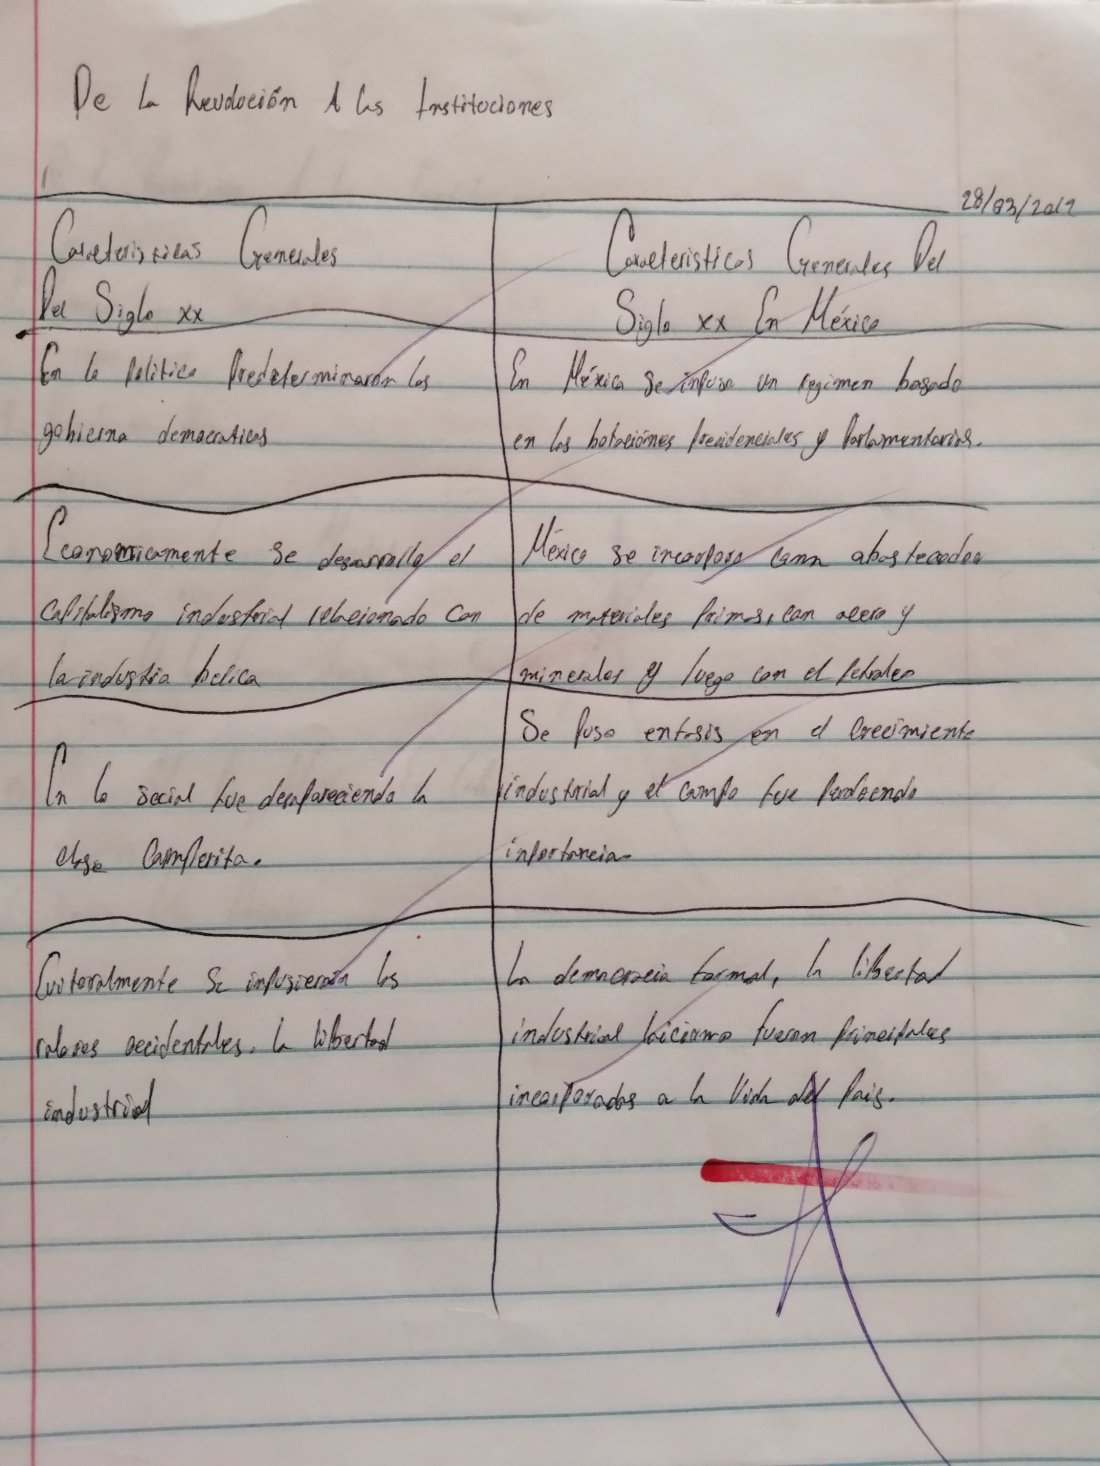 De la Revolución A las Instituciones
28/03/2012
Características Generales
Del Siglo xx
En la politica Predeterminaron los
gobierno democraticos
Economicamente se desarrollo el
capitalismo industrial relacionado con
la industria belica
En lo social fue desapareciendo la
clase Campesita.
Culturalmente se inpusieron los
valores occidentales. la libertad
industrial
Características Generales Del
Siglo xx En México
En México se inpuso un regimen basado
en las botaciónes Presidenciales y Parlamentarias.
México se incorporo como abastecedor
de materiales Primas, con acero y
minerales y luego con el Petroleo
Se Puso enfasis en el Crecimiento
industrial y el campo fue Perdiendo
inportancia.
La democracia formal, la libertad
industrial laicismo fueron Principales
incorporados a la Vida del País.